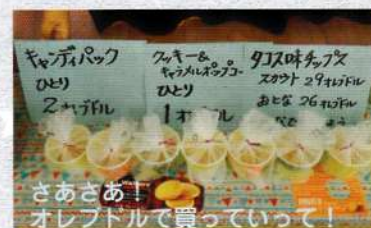 キャンディパック
ひとり
2オレブドル
クッキー&
キャラメルポップコーン
ひとり
1オレブドル
タコス味チップス
スカウト 29オレブドル
おとな 26オレブドル
さあさあ!
オレブドルで買っていって!